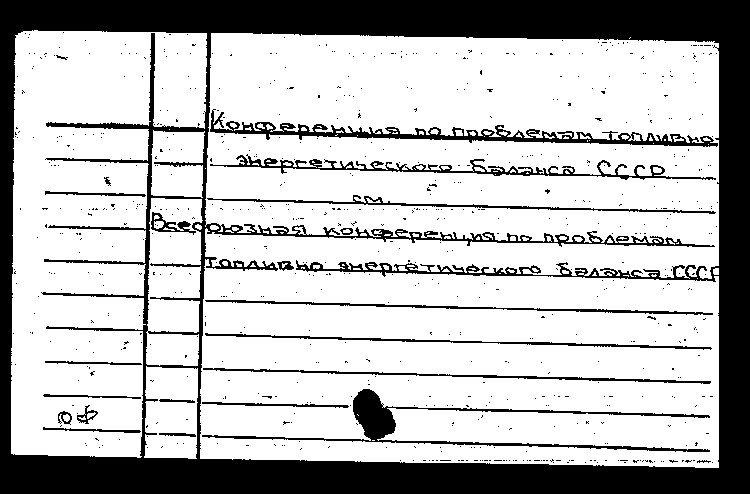 Конференция по проблемам топливно-
энергетического баланса СССР
см.
Всесоюзная конференция по проблемам
топливно энергетического баланса СССР
оф